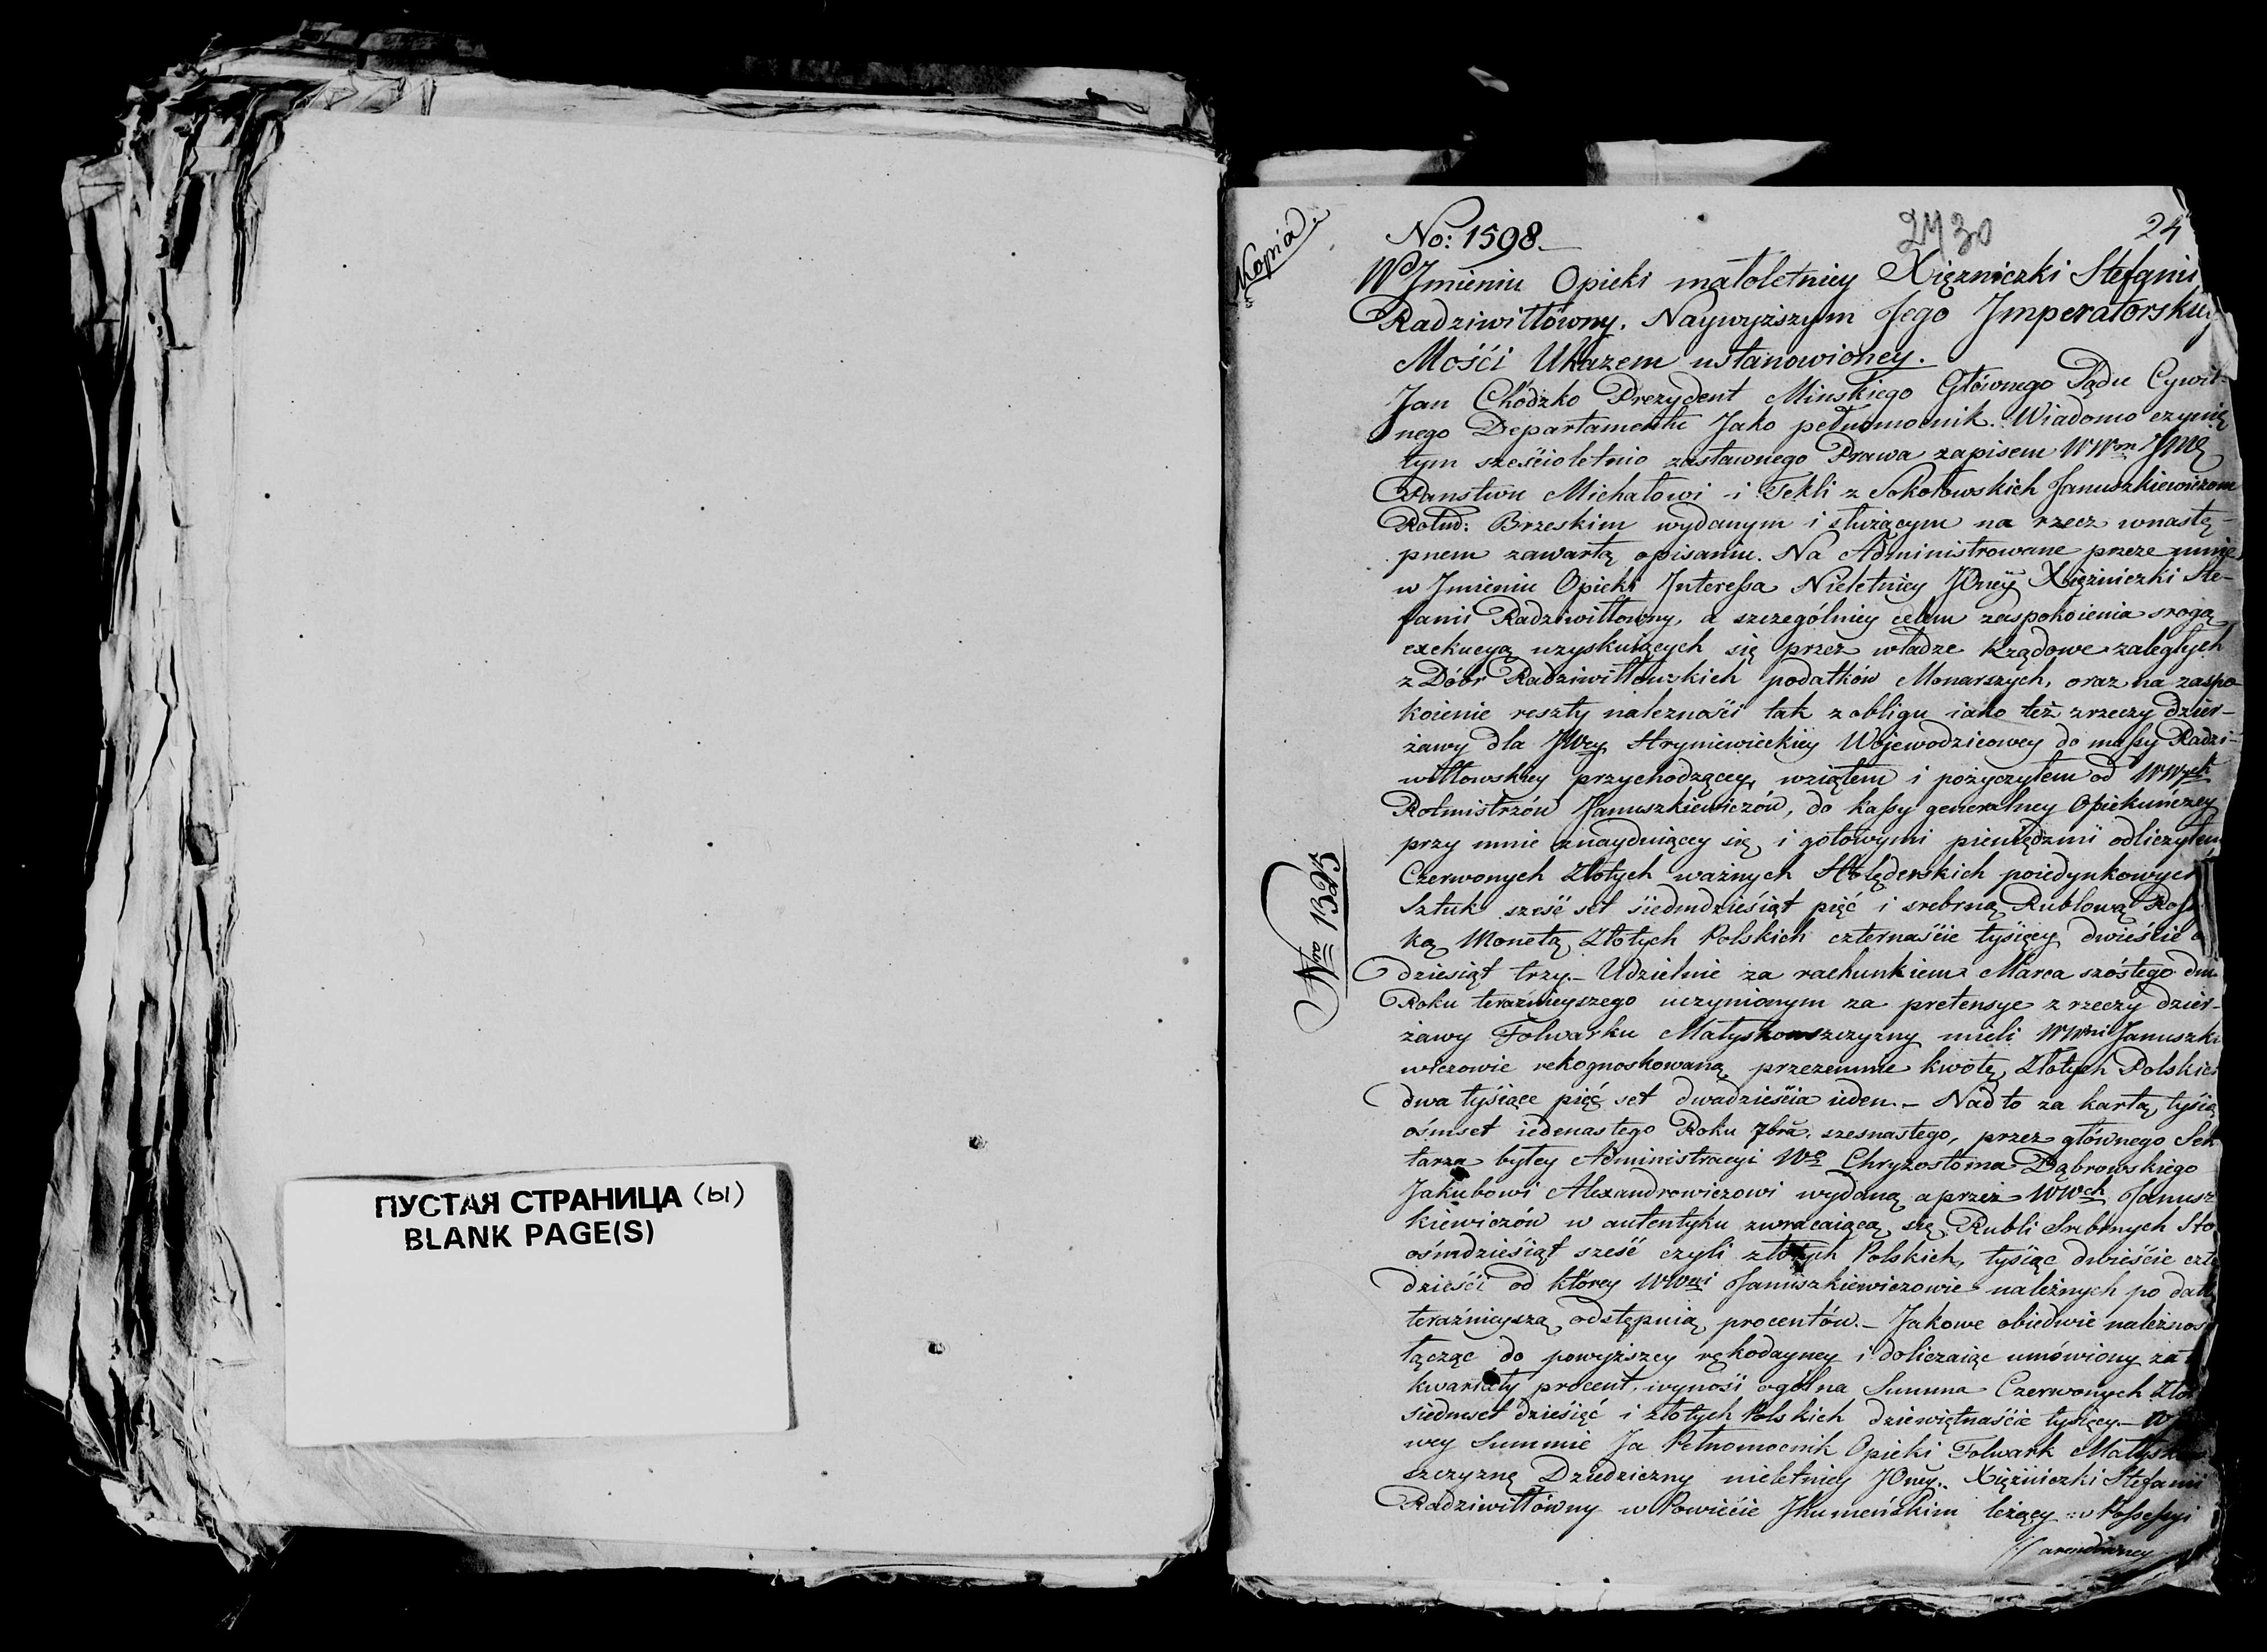 ПУСТАЯ СТРАНИЦА (ы)
BLANK PAGE(S)
Kopia
No: 1598.
2430
24
W Jmieniu Opieki małoletniey Xiężniczki Stefanii
Radziwiłłówny. Naywyższym Jego Jmperatorskiey
Mośći Ukazem ustanowioney.
Jan Chodźko Prezydent Minskiego Głównego Sądu Cywil-
nego Departamentu Jako pełnomocnik. Wiadomo czynię
tym sześcioletnio zastawnego Prawa zapisem WWm
Panstwu Michałowi i Tekli z Sokołowskich Januszkiewiczom
Brzeskim wydanym i służącym na rzecz wnastę-
pnem zawartą opisaniu. Na Administrowane przeze mnie
w Jmieniu Opieki Jnteressa Nieletniey JOney Xiężniczki Ste-
fanii Radziwiłłowny, a szczególniey celem zaspokoienia srogą
exekucyą uzyskuiących się przez władze Rządowe zaległych
z Dóbr Radziwiłłowskich podatków Monarszych, oraz na zaspo-
koienie reszty należnośći tak z obligu iako też z rzeczy dzier-
żawy dla JWey Hryniewieckiey Wojewodzicowey do massy Radzi-
wiłłowskiey przychodzącey, wziąłem i pożyczyłem od WWych
Rotmistrzów Januszkiewiczów, do kassy generalney Opiekunczey
przy mnie znayduiącey się, i gotowymi pieniędzmi odliczyłem
Czerwonych Złotych ważnych Holęderskich poiedynkowych
Sztuk sześć set siedmdziesiąt pięć i srebrną Rublową
ką Monetą Złotych Polskich czternaście tysięcy dwieście
dziesiąt trzy. - Udzielnie za rachunkiem Marca szóstego dnia
Roku teraźnieyszego uczynionym za pretensye z rzeczy dzier-
żawy Folwarku Matyskowszczyzny mieli WWni Januszkie
wiczowie rekognoskowaną przezemnie kwotę Złotych Polskich
dwa tysiące pięć set dwadzieścia ieden. - Nad to za kartą tysiąc
ośmset iedenastego Roku 7bra szesnastego, przez głównego Sekre
tarza byłey Administracyi Wo Chryzostoma Dąbrowskiego
Jakubowi Alexandrowiczowi wydaną a przez WWch Janusz
kiewiczów w autentyku zwracaiącą się Rubli Srebrnych Sto
ośmdziesiąt sześć czyli złotych Polskich, tysiąc dwieście czter
dzieści od którey WWni Januszkiewiczowie należnych po datę
teraźnieyszą odstępuią procentów. - Jakowe obiedwie należnos
łącząc do powyższey rękodayney i doliczaiąc umówiony za
kwartały procent, wynosi ogólna Summa Czerwonych Złot
siedmset dziesięć i złotych Polskich dziewiętnaście tysięcy. - W
wey Summie Ja Pełnomocnik Opieki Folwark Matyskow
szczyznę Dziedziczny nieletniey JOney Xiężniczki Stefanii
Radziwiłłówny w Powiećie Jhumeńskim leżący w Possessyi
arendowney